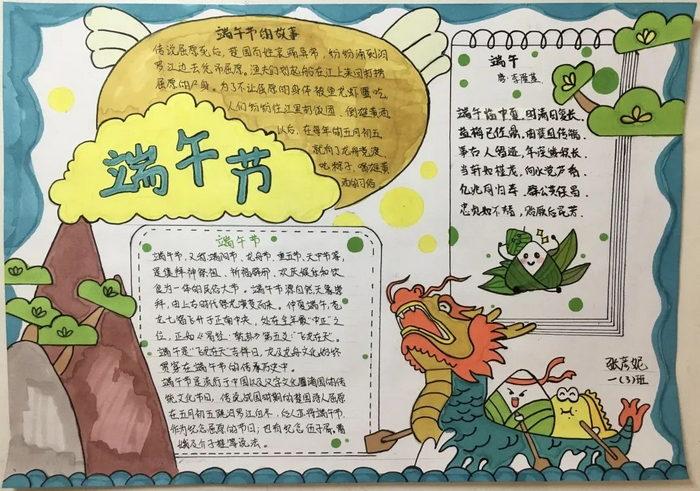 端午节的故事
传说屈原死后，楚国百姓哀痛异常，纷纷涌到汨
罗江边去凭吊屈原。渔夫们划起船只在江上来回打捞
屈原的尸身。为了不让屈原的身体被鱼龙虾蟹吃，
人们纷纷往江里扔饭团，倒雄黄酒
以后，在每年的五月初五，
就有了龙舟竞渡、
吃粽子、喝雄黄
酒的习俗
端午节
端午
唐·李隆基
端午临中夏，时清日复长。
盐梅已佐鼎，曲糵且传觞。
事古人留迹，年深缕积长。
当轩知槿茂，向水觉芦香。
亿兆同归寿，群公共保昌。
忠贞如不替，贻厥后昆芳。
端午节
端午节，又称端阳节、龙舟节、重五节、天中节等，
是集拜神祭祖、祈福辟邪、欢庆娱乐和饮
食为一体的民俗大节。端午节源自天象崇
拜，由上古时代祭龙演变而来。仲夏端午，苍
龙七宿飞升于正南中央，处在全年最“中正”之
位，正如《易经·乾卦》第五爻：“飞龙在天”。
端午是“飞龙在天”吉祥日，龙及龙舟文化始终
贯穿在端午节的传承历史中。
端午节是流行于中国以及汉字文化圈诸国的传
统文化节日，传说战国时期的楚国诗人屈原
在五月初五跳汨罗江自尽，后人亦将端午节
作为纪念屈原的节日；也有纪念伍子胥、曹
娥及介子推等说法。
张彦妮
一（3）班